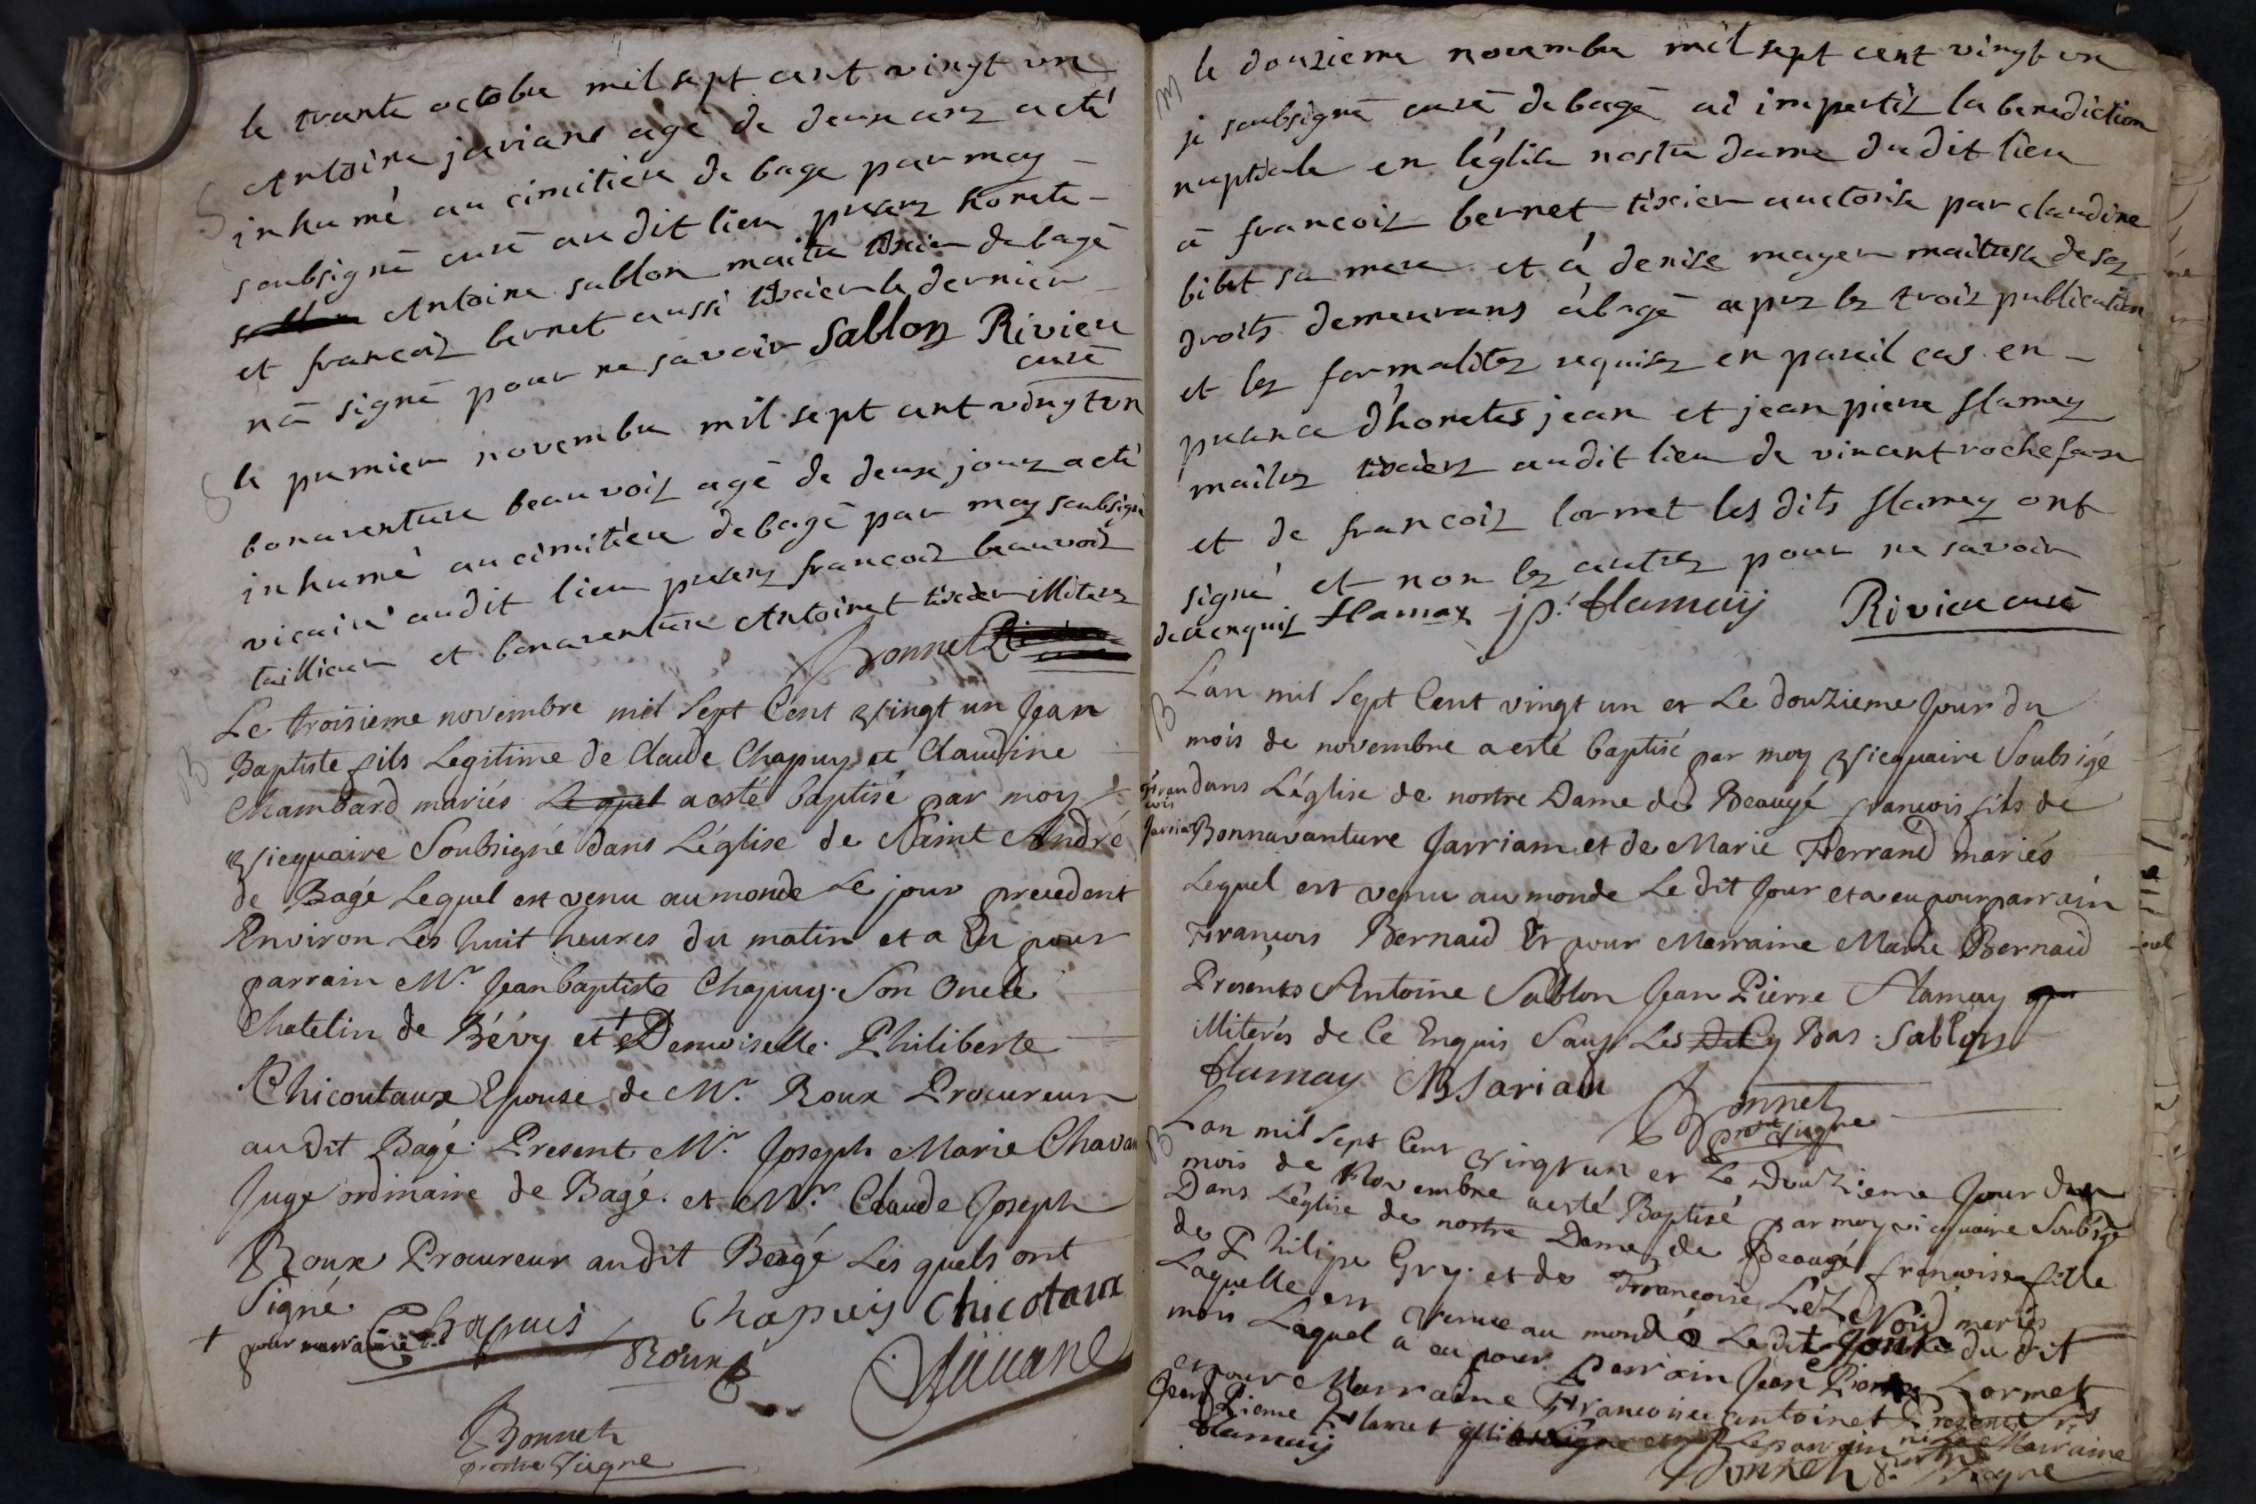 le trante octobre mil sept cent vingt un
Antoine javians agé de deux ans a eté
inhumé au cimitiere de bage par moy
S
soubsigné curé au dit lieu presens honete
Antoine sablon maitre tixier de bagé
et francois bernet aussi tixier le dernier
na signé pour ne savoir Sablon Riviere
curé
le premier novembre mil sept cent vingt un
S
bonaventure beauvois agé de deux jours a eté
inhumé au cimitiere de bagé par moy soubsigné
vicaire audit lieu presens francois beauvois
taillieur et bonaventure Antoinet tixier illiteres
Bonnet
Le troisieme novembre mil Sept Cent Vingt un Jean
B
Baptiste fils Legitime de Claude Chapuy et Claudine
Chambard mariés Le quel a esté baptisé par moy
Vicquaire Soubsigné dans L'église de Saint André
de Bagé Lequel est venu au monde Le jour precedent
Environ Les huit heures du matin et a Eu pour
parrain Mr. Jean baptiste Chapuy. Son Oncle
Chatelin de Bévy et + Demoiselle Philiberte
Chicoutaux Epouse de Mr. Roux Procureur
au dit Bagé. Present Mr. Joseph Marie Chavan
Juge ordinaire de Bagé. et Mr. Claude Joseph
Roux Procureur au dit Beagé Les quels ont
Signé.
+ pour marraine
Chapuis Chapuis Chicotaux
Roux
Bonnet
prestre Vicqre
le douzieme novembre mil sept cent vingt un
M
je soubsigné curé de bagé ai impertis la benediction
nuptiale en l'églile nostre dame du dit lieu
à francois bernet tixier auctorise par claudine
bibet sa mere et à denise mayer maitresse de ses
droits demeurans à bagé apres les trois publication
et les formalites requises en pareil cas en
presence d'honetes jean et jean pierre flamey
maitres tixiers audit lieu de vincent rochefase
et de francois lornet les dits flamey ont
signé et non les autres pour ne savoir
de ce enquis flamay jp. flamaij Riviere curé
L'an mil Sept Cent vingt un et Le douzieme Jour du
B
mois de novembre a esté baptisé par moy Vicquaire Soubsigé
dans L'église de nostre Dame de Beaugé francois fils de
francois
Jarriam
Bonnavanture Jarriam et de Marie Ferrand mariés
Lequel est venu au monde Le dit Jour et a eu pour parrain
François Bernaid Et pour Marraine Marie Bernaid
Présents Antoine Sablon Jean Pierre Flamay
illiterés de Ce Enquis Sauf Les Dit Cy Bas. Sablon
flamay B Jariam Bonnet
prestre Vicqre
L'an mil Sept Cent Vingt un et Le Douzieme Jour du
B
mois de Novembre a esté Baptisé par moy vicquaire Soubsigé
Dans L'église de nostre Dame de Beaugé françoise fille
de Philipe Gry et de Françoise Le Noid mariés
Laquelle est venue au monde Le dit Jour du dit
mois Laquel a eu pour Parrain Jean Pierre Lormet
et pour Marraine Françoise Antoinet Présents
Jean Pierre Flamet
flamaij Bonnet Vicqre